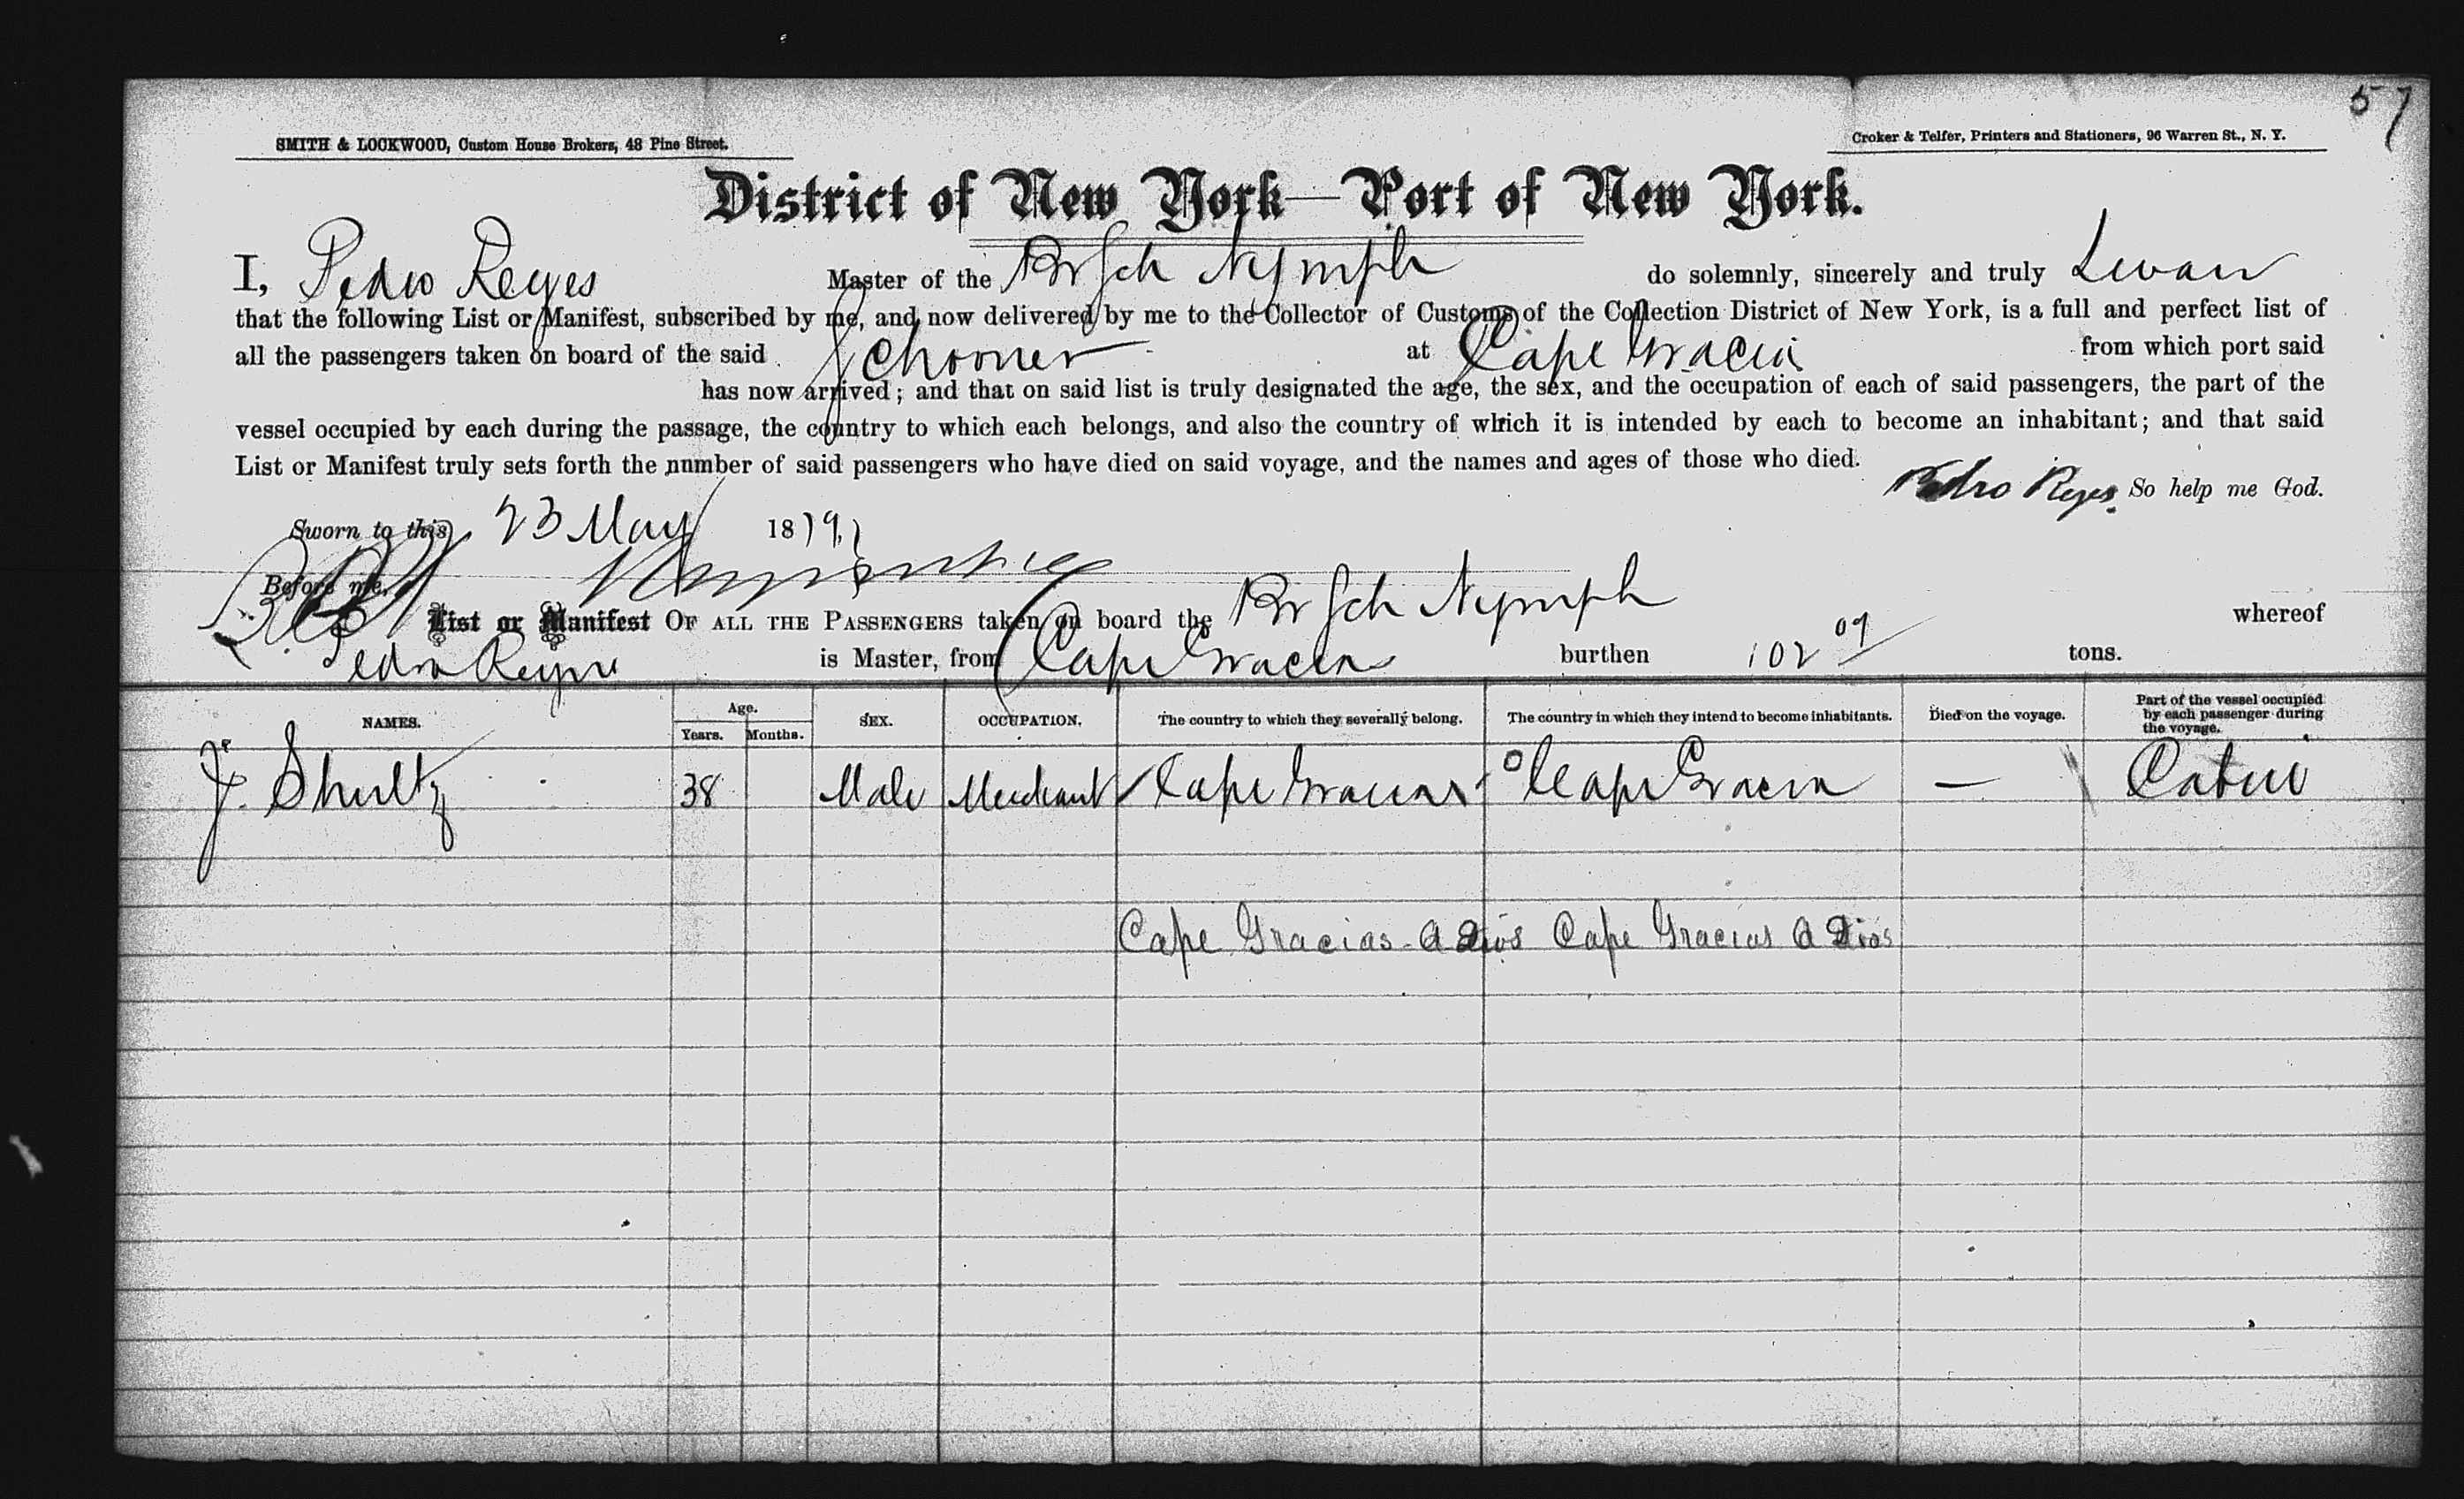 57
SMITH & LOCKWOOD, Custom House Brokers, 48 Pine Street.
Croker & Telfer, Printers and Stationers, 96 Warren St., N. Y.
District of New York—Port of New York.
I, Pedro Reyes Master of the Br Sch Nymph do solemnly, sincerely and truly Swear
that the following List or Manifest, subscribed by me, and now delivered by me to the Collector of Customs of the Collection District of New York, is a full and perfect list of
all the passengers taken on board of the said Schooner at Cape Gracia from which port said
has now arrived; and that on said list is truly designated the age, the sex, and the occupation of each of said passengers, the part of the
vessel occupied by each during the passage, the country to which each belongs, and also the country of which it is intended by each to become an inhabitant; and that said
List or Manifest truly sets forth the number of said passengers who have died on said voyage, and the names and ages of those who died.
Pedro Reyes So help me God.
Sworn to this 23 May 1879
Before me,
List or Manifest OF ALL THE PASSENGERS taken on board the Br Sch Nymph whereof
Pedro Reyes is Master, from Cape Gracia burthen 102 09 tons.
NAMES. Age. Years. Months. SEX. OCCUPATION. The country to which they severally belong. The country in which they intend to become inhabitants. Died on the voyage. Part of the vessel occupied by each passenger during the voyage.
J. Shultz 38 Male Merchant Cape Gracias Cape Gracia — Cabin
Cape Gracias a Dios Cape Gracias a Dios